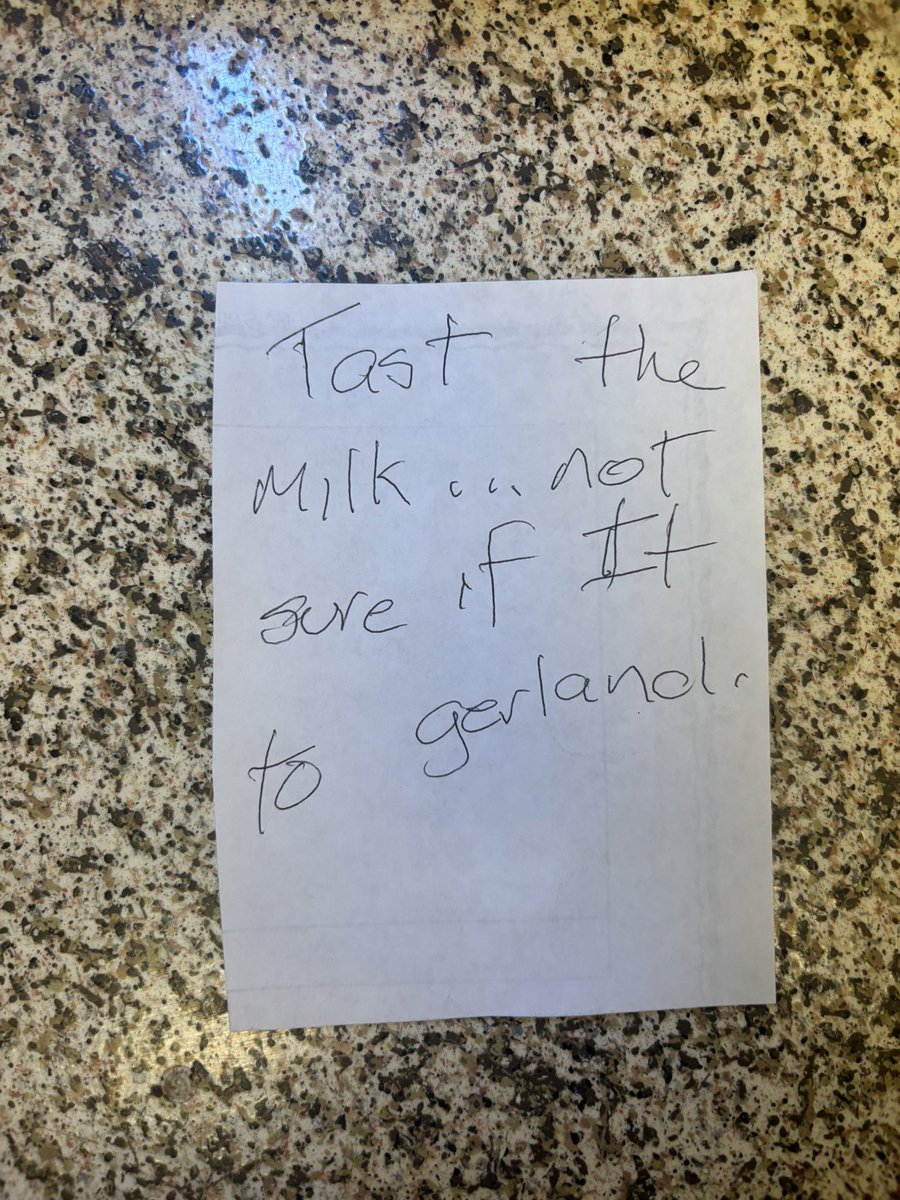 Tast the
Milk ... not
sure if It
to gerland.